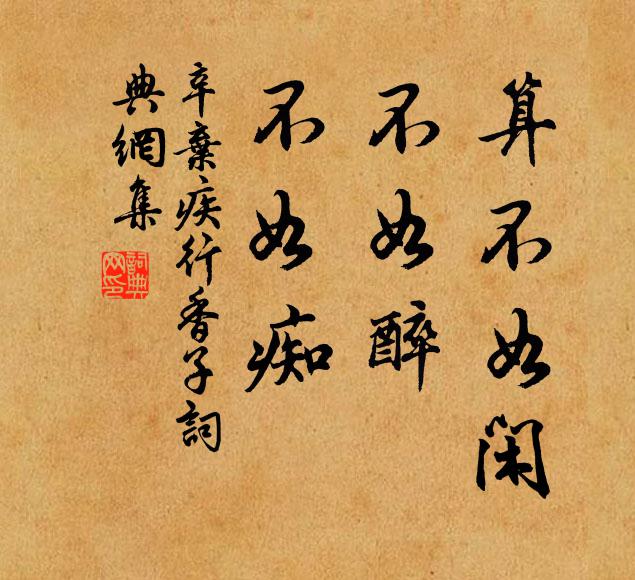 算不如閑
不如醉
不如痴
辛棄疾行香子詞
典網集
詞典網印